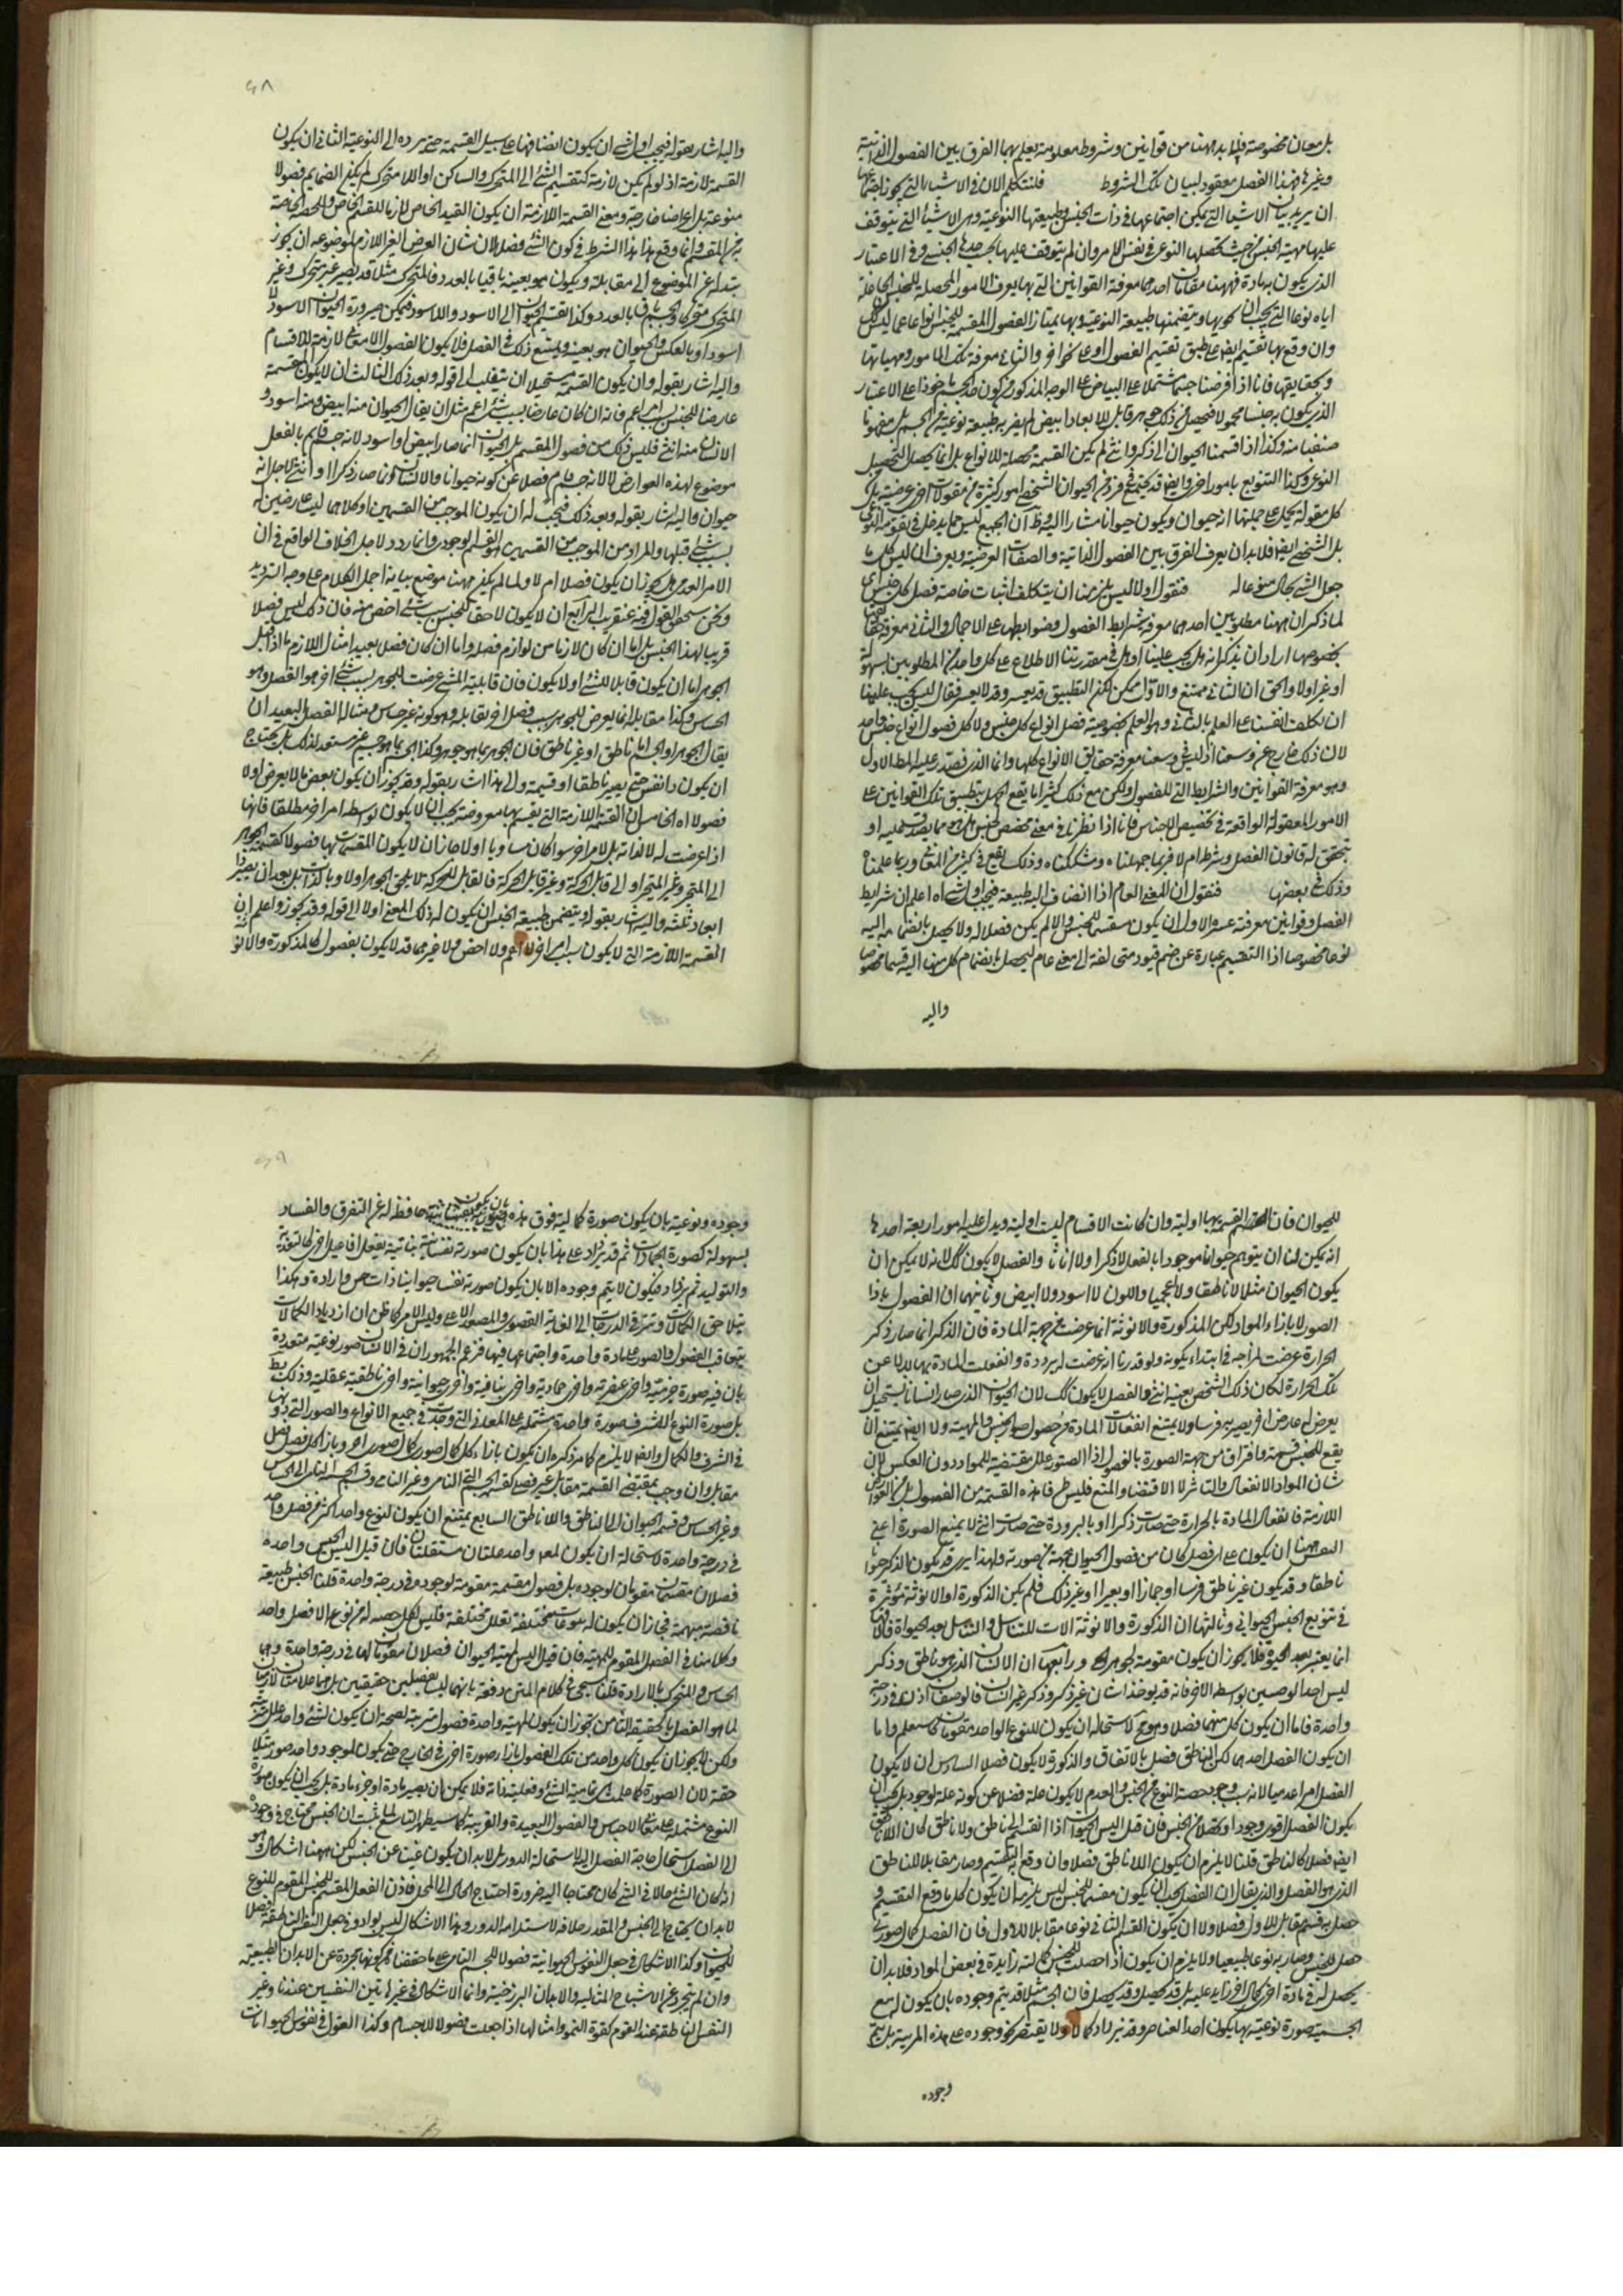 بل معان مخصوصة فلا بد ههنا من قوانين وشروط معلومة يعلم بها الفرق بين الفصول الذاتية
وغيرها فهذا الفصل معقود لبيان تلك الشروط فلنتكلم الان فى الاشياء التى يجوز اجتماعها
ان يريد بيان الاشياء التى يمكن اجتماعها فى ذات الجنس وطبيعتها النوعية وهى الاشياء التى يتوقف
عليها مهية الجنس من حيث تحصلها النوعى فى نفس الامر وان لم يتوقف عليها بحسب حدها الجنسى وفى الاعتبار
الذى يكون به مادة فههنا مقامان احدهما معرفة القوانين التى بها يعرف الامور المحصلة للجنس الجاعلة
اياه نوعا التى يجب ان يكون بها ويتضمنها طبيعته النوعية وبها يمتاز الفصول المقسمة للجنس انواعا عما ليس كك
وان وقع بها تقسيم ايضا على طبق تقسيم الفصول او على نحو اخر والثانى معرفة تلك الامور ومهياتها
وحقايقها فانا اذا فرضنا جسما مشتملا على البياض على الوجه المذكور من كون الجسم ماخوذا على الاعتبار
الذى يكون به جنسا محمولا فيحصل من ذلك جوهر قابل للابعاد ابيض لم يصر به طبيعة نوعية من الجسم بل مفهوما
صنفيا منه وكذا اذا قسمنا الحيوان الى ذكر وانثى لم يكن القسمة محصلة للانواع بل انما يحصل التحصيل
النوعى وكذا التنويع بامور اخر وايضا قد يجتمع فى فرد من الحيوان الشخصى امور كثيرة من مقولات اخر عرضية بل
كل مقولة يحمل على جملتها انه حيوان ويكون حيوانا مشارا اليه وظ ان الجميع ليس مما يدخل فى تقويمه النوعى
بل الشخصى ايضا فلا بد ان يعرف الفرق بين الفصول الذاتية والصفات العرضية ويعرف ان ليس كل ما
جعل الشئ بحال منوعا له فنقول اولا ليس يلزمنا ان يتكلف اثبات خاصة فصل كل جنس اى
لما ذكر ان ههنا مطلوبين احدهما معرفة شرايط الفصول وضوابطها على الاجمال والثانى معرفة حقايقها
بخصوصها اراد ان يذكر انه هل يجب علينا او هل فى مقدرتنا الاطلاع على كل واحد من المطلوبين بسهولة
او غير اولا والحق ان الثانى ممتنع والاول ممكن لكن التطبيق قد يعسر وقد لا يعسر فقال ليس يجب علينا
ان نكلف انفسنا على العلم بالثانى وهو العلم بخصوصية فصل انواع كل جنس ولا كل فصول انواع جنس واحد
لان ذلك خارج عن وسعنا اذ ليس فى وسعنا معرفة حقايق الانواع كلها وانما الذى نقتدر عليه المط الاول
وهو معرفة القوانين والشرايط التى للفصول ولكن مع ذلك كثيرا ما يقع الجهل بتطبيق تلك القوانين على
الامور المعقولة الواقعة فى تخصيص الاجناس فانا اذا نظرنا فى معنى مخصص لجنس هل هو مما يصدق عليه او
تحقق له قانون الفصل وشرطه ام لا فربما جهلناه وشككناه وذلك يقع فى كثير من المعانى وربما علمناه
وذلك فى بعضها فنقول ان المعنى العام اذا انضاف اليه طبيعة فيجب اول شئ اه اعلم ان شرايط
الفصل وقوانين معرفته عشرة الاول ان يكون مقسما للجنس والا لم يكن فصلا له ولا يحصل بانضمامه اليه
نوعا مخصوصا اذا التقسيم عبارة عن ضم قيود متخالفة الى معنى عام ليحصل بانضمام كل منها اليه قسما مخصوصا
واليه
٦٨
واليه اشار بقوله فيجب اول شئ ان يكون انضيافها على سبيل القسمة حتى يرده الى النوعية الثانى ان يكون
القسمة لازمة اذ لو لم يكن لازمة كتقسيم الشئ الى المتحرك والساكن او اللا متحرك لم يكن الضمايم فصولا
منوعة بل اعراضا خارجة ومعنى القسمة اللازمة ان يكون القيد الخاص لازما للقسم الخاص والحصة الخاصة
من المقسم وانما وقع هذا الشرط فى كون الشئ فصلا لان شان العرض الغير اللازم لموضوعه ان يجوز
تبدله عن الموضوع الى مقابله ويكون هو بعينه باقيا بالعدد فالمتحرك مثلا قد يصير غير متحرك وغير
المتحرك متحركا والجسم باق بالعدد وكذا تقسيم الحيوان الى الاسود واللا اسود فيمكن صيرورة الحيوان الاسود لا
اسود او بالعكس والحيوان هو بعينه ويمتنع ذلك فى الفصل فلا يكون الفصول الا معانى لازمة للاقسام
واليه اشار بقوله وان يكون القسمة مستحيلا ان ينقلب الى قوله وبعد ذلك الثالث ان لا يكون القسمة
عارضا للجنس بسبب امر اعم فانه ان كان عارضا بسبب شئ اعم مثل ان يقال الحيوان منه ابيض ومنه اسود و
الانسان منه انثى فليس ذلك من فصول المقسم بل الحيوان انما صار ابيض او اسود لانه جسم قايم بالفعل
موضوع لهذه العوارض لا لانه جسم نام فضلا عن كونه حيوانا والانسان انما صار ذكرا او انثى لاجل انه
حيوان واليه اشار بقوله وبعد ذلك فيجب له ان يكون الموجب من القسمين او كلاهما ليسا عارضين له
بسبب شئ قبلها والمراد من الموجب من القسمين هو القسم الوجودى وانما ردد لاجل الخلاف الواقع فى ان
الامر العدمى هل يجوز ان يكون فصلا ام لا ولما لم يكن ههنا موضع بيانه اجمل الكلام على وجه الترديد
ونحن سنحقق القول فيه عنقريب الرابع ان لا يكون لاحقا للجنس بسبب شئ اخص منه فان ذلك ليس فصلا
قريبا لهذا الجنس بل اما ان كان لازما من لوازم فصل واما ان كان فصل بعيد امثال اللازم ما اذا قيل
الجوهر اما ان يكون قابلا للشئ او لا يكون فان قابلية الشئ عرضت للجوهر بسبب شئ اخر هو الفصل وهو
الحساس وكذا مقابله انما يعرض للجوهر بسبب فصل اخر يقابله وهو كونه غير حساس ومثال الفصل البعيد ان
يقال الجوهر او الجسم اما ناطق او غير ناطق فان الجوهر بما هو جوهر وكذا الجسم بما هو جسم غير مستعد لذلك بل يحتاج
ان يكون ذا نفس حتى يصير ناطقا او قسيمه والى هذا اشار بقوله وقد يجوز ان يكون بعض ما لا يعرض اولا
فصولا اه الخامس ان القسمة اللازمة التى يقسم بها معروضه يجب ان لا يكون بواسطة امر اخر مطلقا فانها
اذا عرضت له لا لذاته بل لامر اخر سوا كان مساويا او لا جاز ان لا يكون المقسمات بها فصولا كقسمة الجوهر
الى المتحيز وغير المتحيز او الى قابل الحركة وغير قابل الحركة فالقابل للحركة لا يلحق الجوهر اولا وبالذات بل بعد ان يصير ذا
ابعاد ثلثة واليه اشار بقوله ويتضمن طبيعة الجنس ان يكون له ذلك المعنى اولا الى قوله وقد يجوز واعلم ان
القسمة اللازمة التى لا يكون بسبب امر اخر لا اعم ولا اخص ولا غيرهما قد لا يكون بفصول كالمذكورة والانوثة
للحيوان فان القسمة بها اولية وان كانت الاقسام ليست اولية ويدل عليه امور اربعة احدها
انه يمكن لنا ان يتوهم حيوانا موجودا بالفعل لا ذكرا ولا اناثا والفصل لا يكون كك لانه لا يمكن ان
يكون الحيوان مثلا لا ناطقا ولا اعجميا واللون لا اسود ولا ابيض وثانيهما ان الفصول بازاء
الصور لا بازاء المواد لكن المذكورة والانوثة انما عرضت من جهة المادة فان الذكر انما صار ذكرا
لحرارة عرضت لمزاجه فى ابتداء تكونه ولو قدرنا انه عرضت له برودة وانفعلت المادة بها بدلا عن
تلك الحرارة لكان ذلك الشخص بعينه انثى والفصل لا يكون كك لان الحيوان الذى صار انسانا يستحيل ان
يعرض له عارض اخر يصير به فرسا ولا يمتنع انفعالات المادة من حصول صورة الجنس والمهية ولا ايضا يمتنع ان
يقع للجنس قسمة وافتراق من جهة الصورة بالفصول اذ الصور علل مقتضية للمواد دون العكس لان
شان المواد الانفعال والتاثر لا الاقتضاء والمنع فليس طرفا هذه القسمة من الفصول بل من العوارض
اللازمة فانفعال المادة بالحرارة حتى صارت ذكرا او بالبرودة حتى صارت انثى لا يمنع الصورة اعنى
النفس ههنا ان يكون على اى فصل كان من فصول الحيوان بجهة من صورته ولهذا يرى قد يكون الذكر حيوانا
ناطقا وقد يكون غير ناطق فرسا او حمارا او بعيرا او غير ذلك فلم يكن الذكورة او الانوثة مؤثرة
فى تنويع الجنس الحيوانى وثالثها ان الذكورة والانوثة الات للتناسل والتناسل بعد الحياة فالاتها
انما يعتبر بعد الحيوة فلا يجوز ان يكون مقومة لجوهرها ورابعها ان الانسان الذى هو ناطق وذكر
ليس احد الوصفين بواسطة الاخر فانه قد يوجد انسان غير ذكر وذكر غير انسان فالوصفان اذن فى درجة
واحدة فاما ان يكون كل منهما فصلا وهو مح لاستحالة ان يكون للنوع الواحد مقومان كما ستعلم واما
ان يكون الفصل احدهما لكن الناطق فصل بالاتفاق والذكورة لا يكون فصلا السادس ان لا يكون
الفصل امرا عدميا لانه سبب وجود حصة النوع من الجنس والعدم لا يكون علة فضلا عن كونه علة لوجود بل يجب ان
يكون الفصل اقوى وجودا وتحصلا من الجنس فان قيل اليس الحيوان اذا انقسم الى ناطق ولا ناطق كان اللا ناطق
ايضا فصلا كالناطق قلنا لا يلزم ان يكون اللا ناطق فصلا وان وقع به التقسيم وصار مقابلا للناطق
الذى هو الفصل والذى يقال ان الفصل يجب ان يكون مقسما للجنس ليس يلزمه ان يكون كل ما وقع التقسيم و
حصل به قسيم مقابل للاول فصلا ولا ان يكون القسم الثانى نوعا مقابلا للاول فان الفصل كمال صورى
حصل للجنس وصار به نوعا طبيعيا ولا يلزم ان يكون اذا حصلت للجنس كمالية زايدة فى بعض المواد فلا بد ان
يحصل له فى مادة اخرى كمال اخر زايد عليه بل قد يحصل وقد يحصل فان الجسم مثلا قد يتم وجوده بان يكون له مع
الجسمية صورة نوعية بها يكون احد العناصر وقد يزداد كمالا ولا يقتصر نحو وجوده على هذه المرتبة بل يتم
وجوده
٦٩
وجوده ونوعيته بان يكون صورة كمالية فوق هذه بان يكون حافظة له عن التفرق والفساد
بسهولة كصورة الجمادات ثم قد يزداد على هذا بان يكون صورته نفسانية نباتية يفعل افاعيل اخرى كالتغذية
والتوليد ثم يزداد فيكون لا يتم وجوده الا بان يكون صورته نفسا حيوانيا ذات حس وارادة وهكذا
يتلاحق الكمالات ويترقى الدرجات الى الغاية القصوى والصورة الاعلى وليس الامر كما ظن ان ازدياد الكمالات
بتعاقب الفصول والصور على مادة واحدة واجتماعها فيها فزعم الجمهور ان فى الانسان صور نوعية متعددة
بان فيه صورة جزئية واخرى عنصرية واخرى جمادية واخرى نباتية واخرى حيوانية واخرى ناطقية عقلية وذلك بط
بل صورة النوع الاشرف صورة واحدة مشتملة على المعانى التى وجدت فى جميع الانواع والصور التى دونها
فى الشرف والكمال وايضا لا يلزم كما مر ذكره ان يكون بازاء كل كمال صورى كمال صورى اخر وبازاء كل فصل فصل
مقابل وان وجب بمقتضى القسمة مقابل غير فصل كقسمة الجسم الى النامى وغير النامى وقسمة الجسم النامى الى الحساس
وغير الحساس وقسمة الحيوان الى الناطق واللا ناطق السابع يمتنع ان يكون لنوع واحد اكثر من فصل واحد
فى درجة واحدة لاستحالة ان يكون لمعلول واحد علتان مستقلتان فان قيل اليس الجنس واحده
فصلان مقسمان مقومان لوجوده بل فصول مقسمة مقومة لوجوده فى درجة واحدة قلنا الجنس طبيعة
ناقصة مبهمة فجاز ان يكون له بعلل مختلفة فليس لكل حصة له من نوع الا فصل واحد
وكلامنا فى الفصل المقوم للمهية فان قيل اليس لمهية الحيوان فصلان مقومان لها فى درجة واحدة وهما
الحساس والمتحرك بالارادة قلنا سيجئ فى كلام المتن دفعه بانهما ليسا بفصلين حقيقيين بل هما علامتان لازمتان
لما هو الفصل بالحقيقة الثامن يجوز ان يكون لمهية واحدة فصول مترتبة لصحة ان يكون لشئ واحد علل مترتبة
ولكن لا يجوز ان يكون كل واحد من تلك الفصول بازاء صورة اخرى فى الخارج حتى يكون لموجود واحد صور متلاحقة
حقة لان الصورة كما علمت هى تمامية الشئ وفعلية ذاته فلا يمكن ان يصير مادة او جزء مادة بل يجب ان يكون صورة
النوع مشتملة على معانى الاجناس والفصول البعيدة والقريبة كما سيظهر التاسع لما ثبت ان الجنس محتاج فى وجوده
الى الفصل استحال حاجة الفصل اليه لاستحالة الدور بل لا بد ان يكون غنيا عن الجنس لكن ههنا اشكال وهو
اذ كان الشئ حالا فى الشئ كان محتاجا اليه ضرورة احتياج الحال الى المحل فاذن الفصل المقسم للجنس المقوم للنوع
لا بد ان يحتاج الى الجنس والمقدر خلافه لاستدامه الدور وهذا الاشكال ليس بوارد فى جعل النفس الناطقة فصلا
للحيوان وكذا الاشكال فى جعل النفوس الحيوانية فصولا للجسم النامى على ما حققنا من كونها مجردة عن الابدان الطبيعية
وان لم يتجرد عن الاشباح المثالية والابدان البرزخية وانما الاشكال فى غير هاتين النفسين عندنا وغير
النفس الناطقة عند القوم كقوة النمو وامثالها اذا جعلت فصولا للاجسام وكذا القول فى نفوس الحيوانات